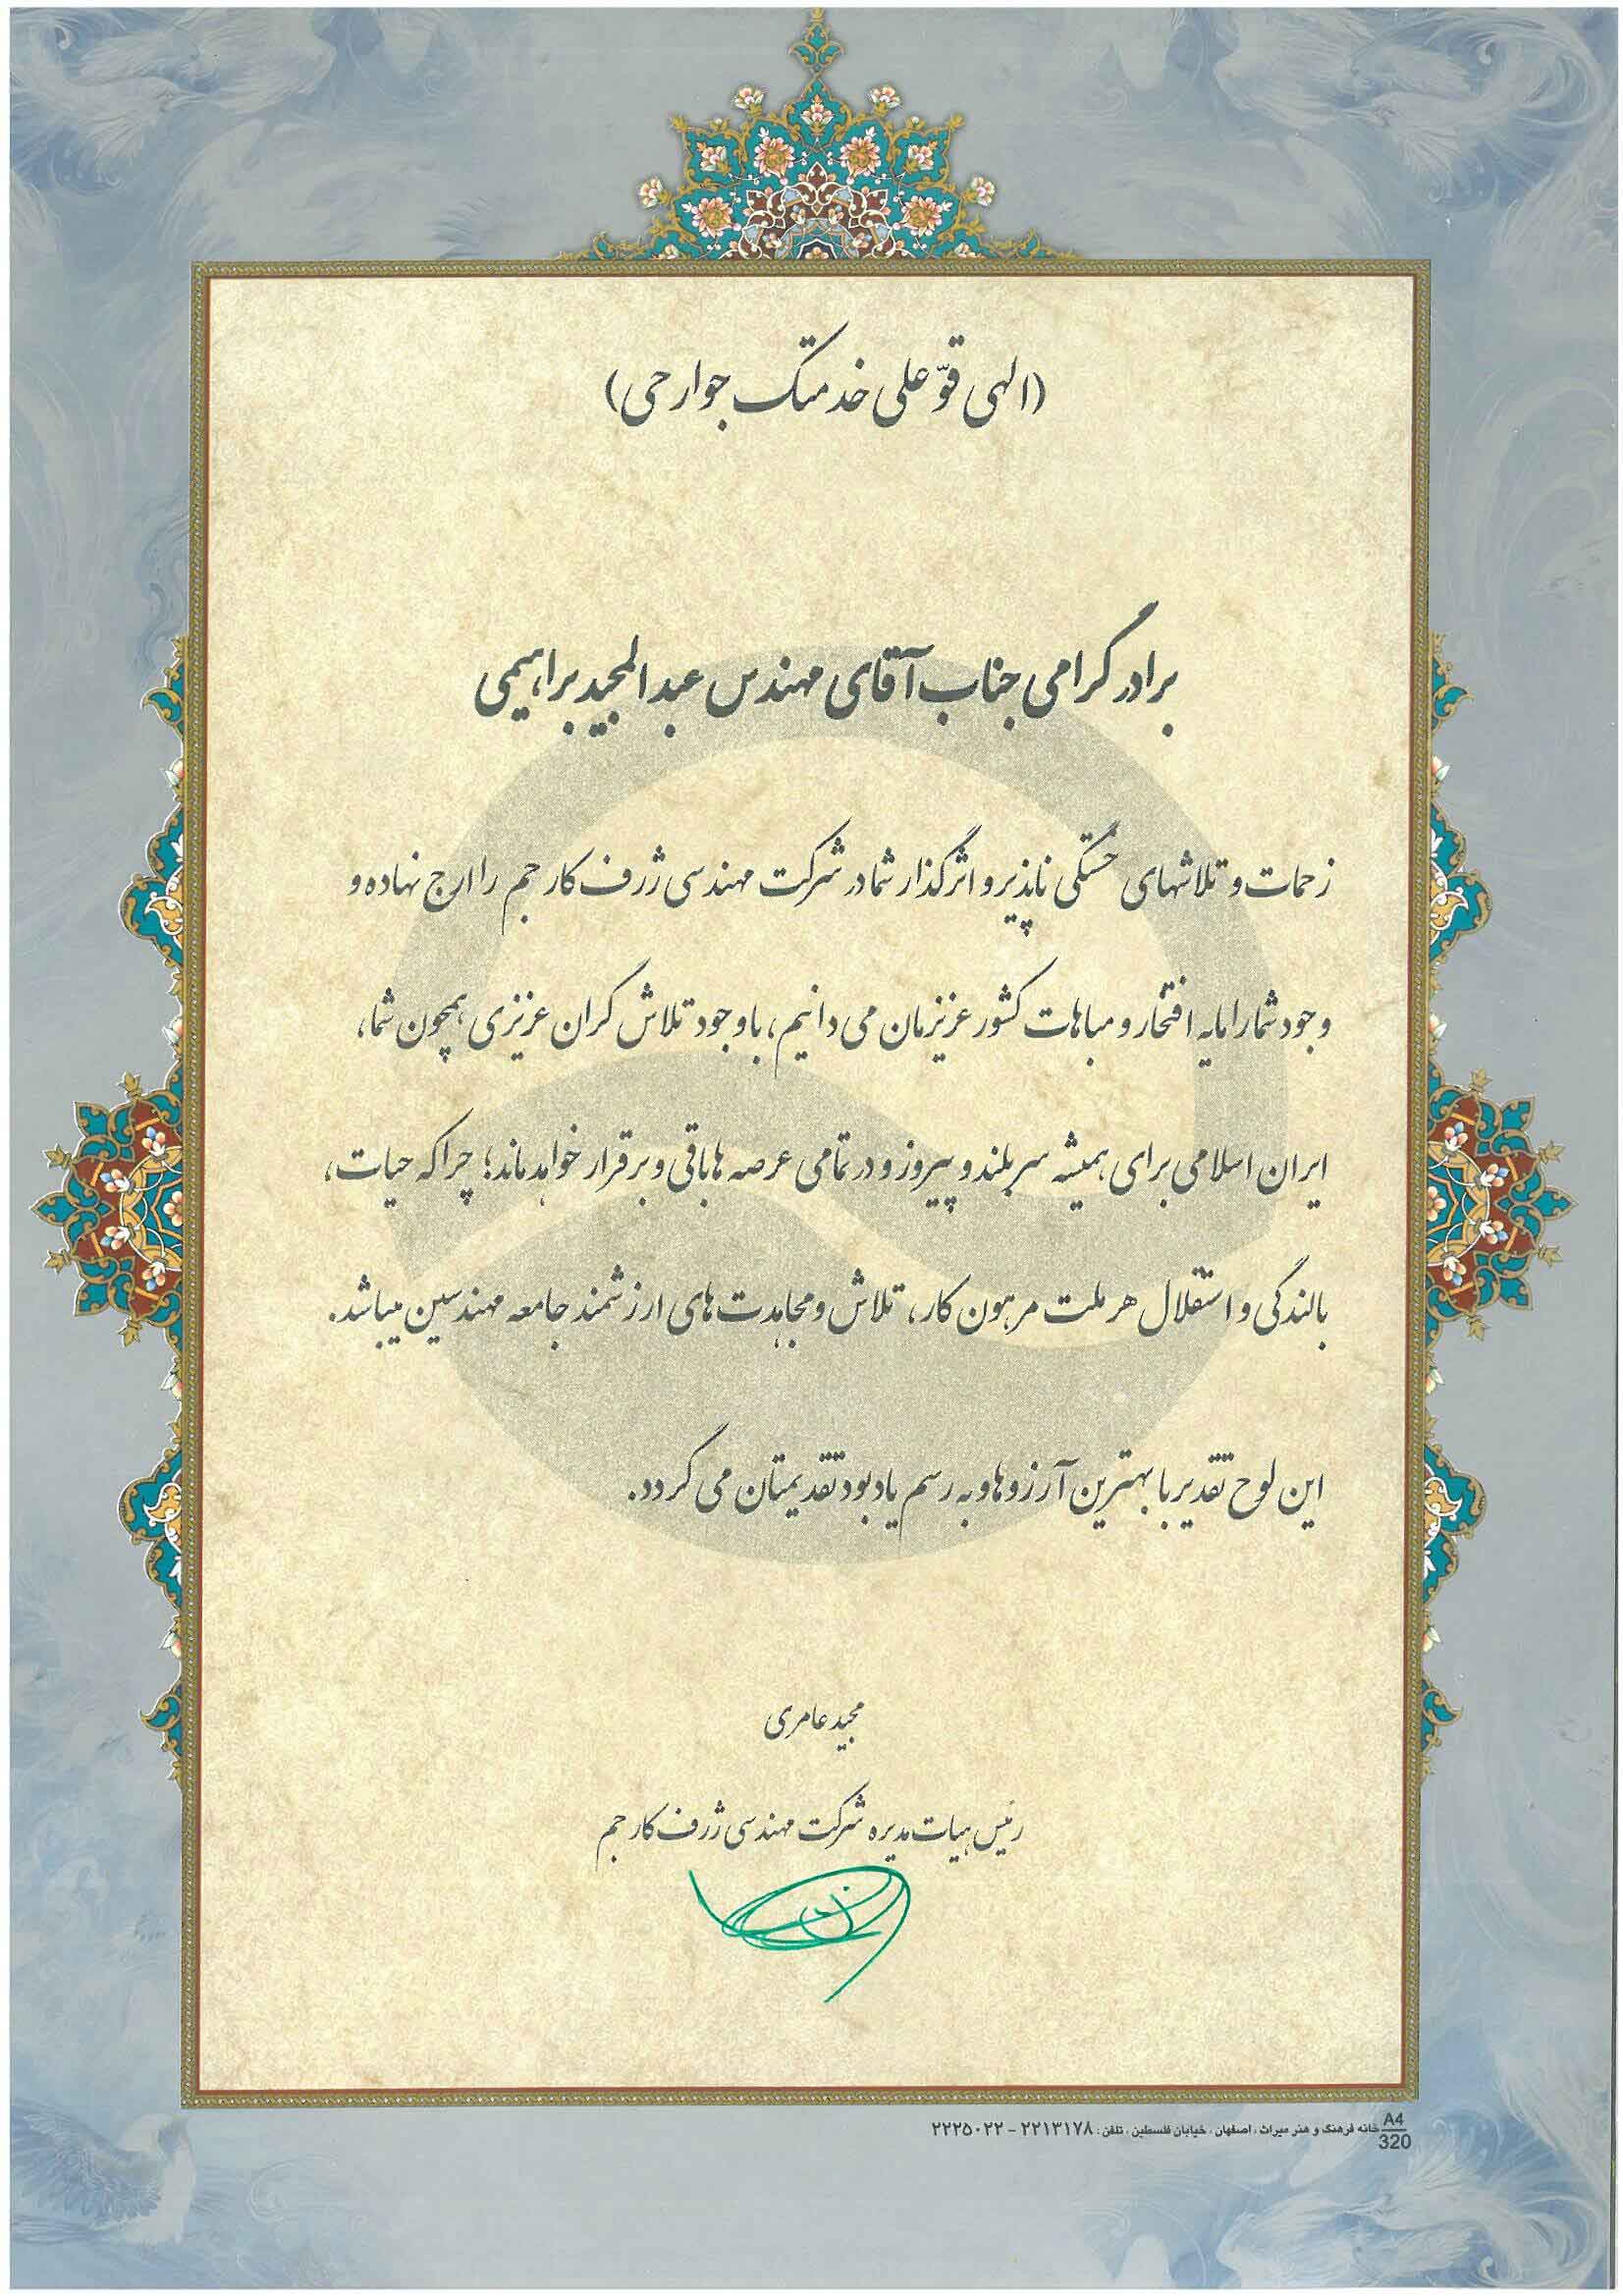 (الهی قوّ علی خدمتک جوارحی)
برادر گرامی جناب آقای مهندس عبدالمجید براهیمی
زحمات و تلاشهای خستگی ناپذیر و اثرگذار شما در شرکت مهندسی ژرف کار جم را ارج نهاده و
وجود شما را مایه افتخار و مباهات کشور عزیزمان می دانیم، با وجود تلاش گران عزیزی همچون شما،
ایران اسلامی برای همیشه سربلند و پیروز و در تمامی عرصه ها باقی و برقرار خواهد ماند؛ چرا که حیات،
بالندگی و استقلال هر ملت مرهون کار، تلاش و مجاهدت های ارزشمند جامعه مهندسین میباشد.
این لوح تقدیر با بهترین آرزوها و به رسم یادبود تقدیمتان می گردد.
مجید عامری
رئیس هیات مدیره شرکت مهندسی ژرف کار جم
A4
320
خانه فرهنگ و هنر میراث، اصفهان، خیابان فلسطین، تلفن: ۲۲۱۳۱۷۸ - ۲۲۲۵۰۲۲